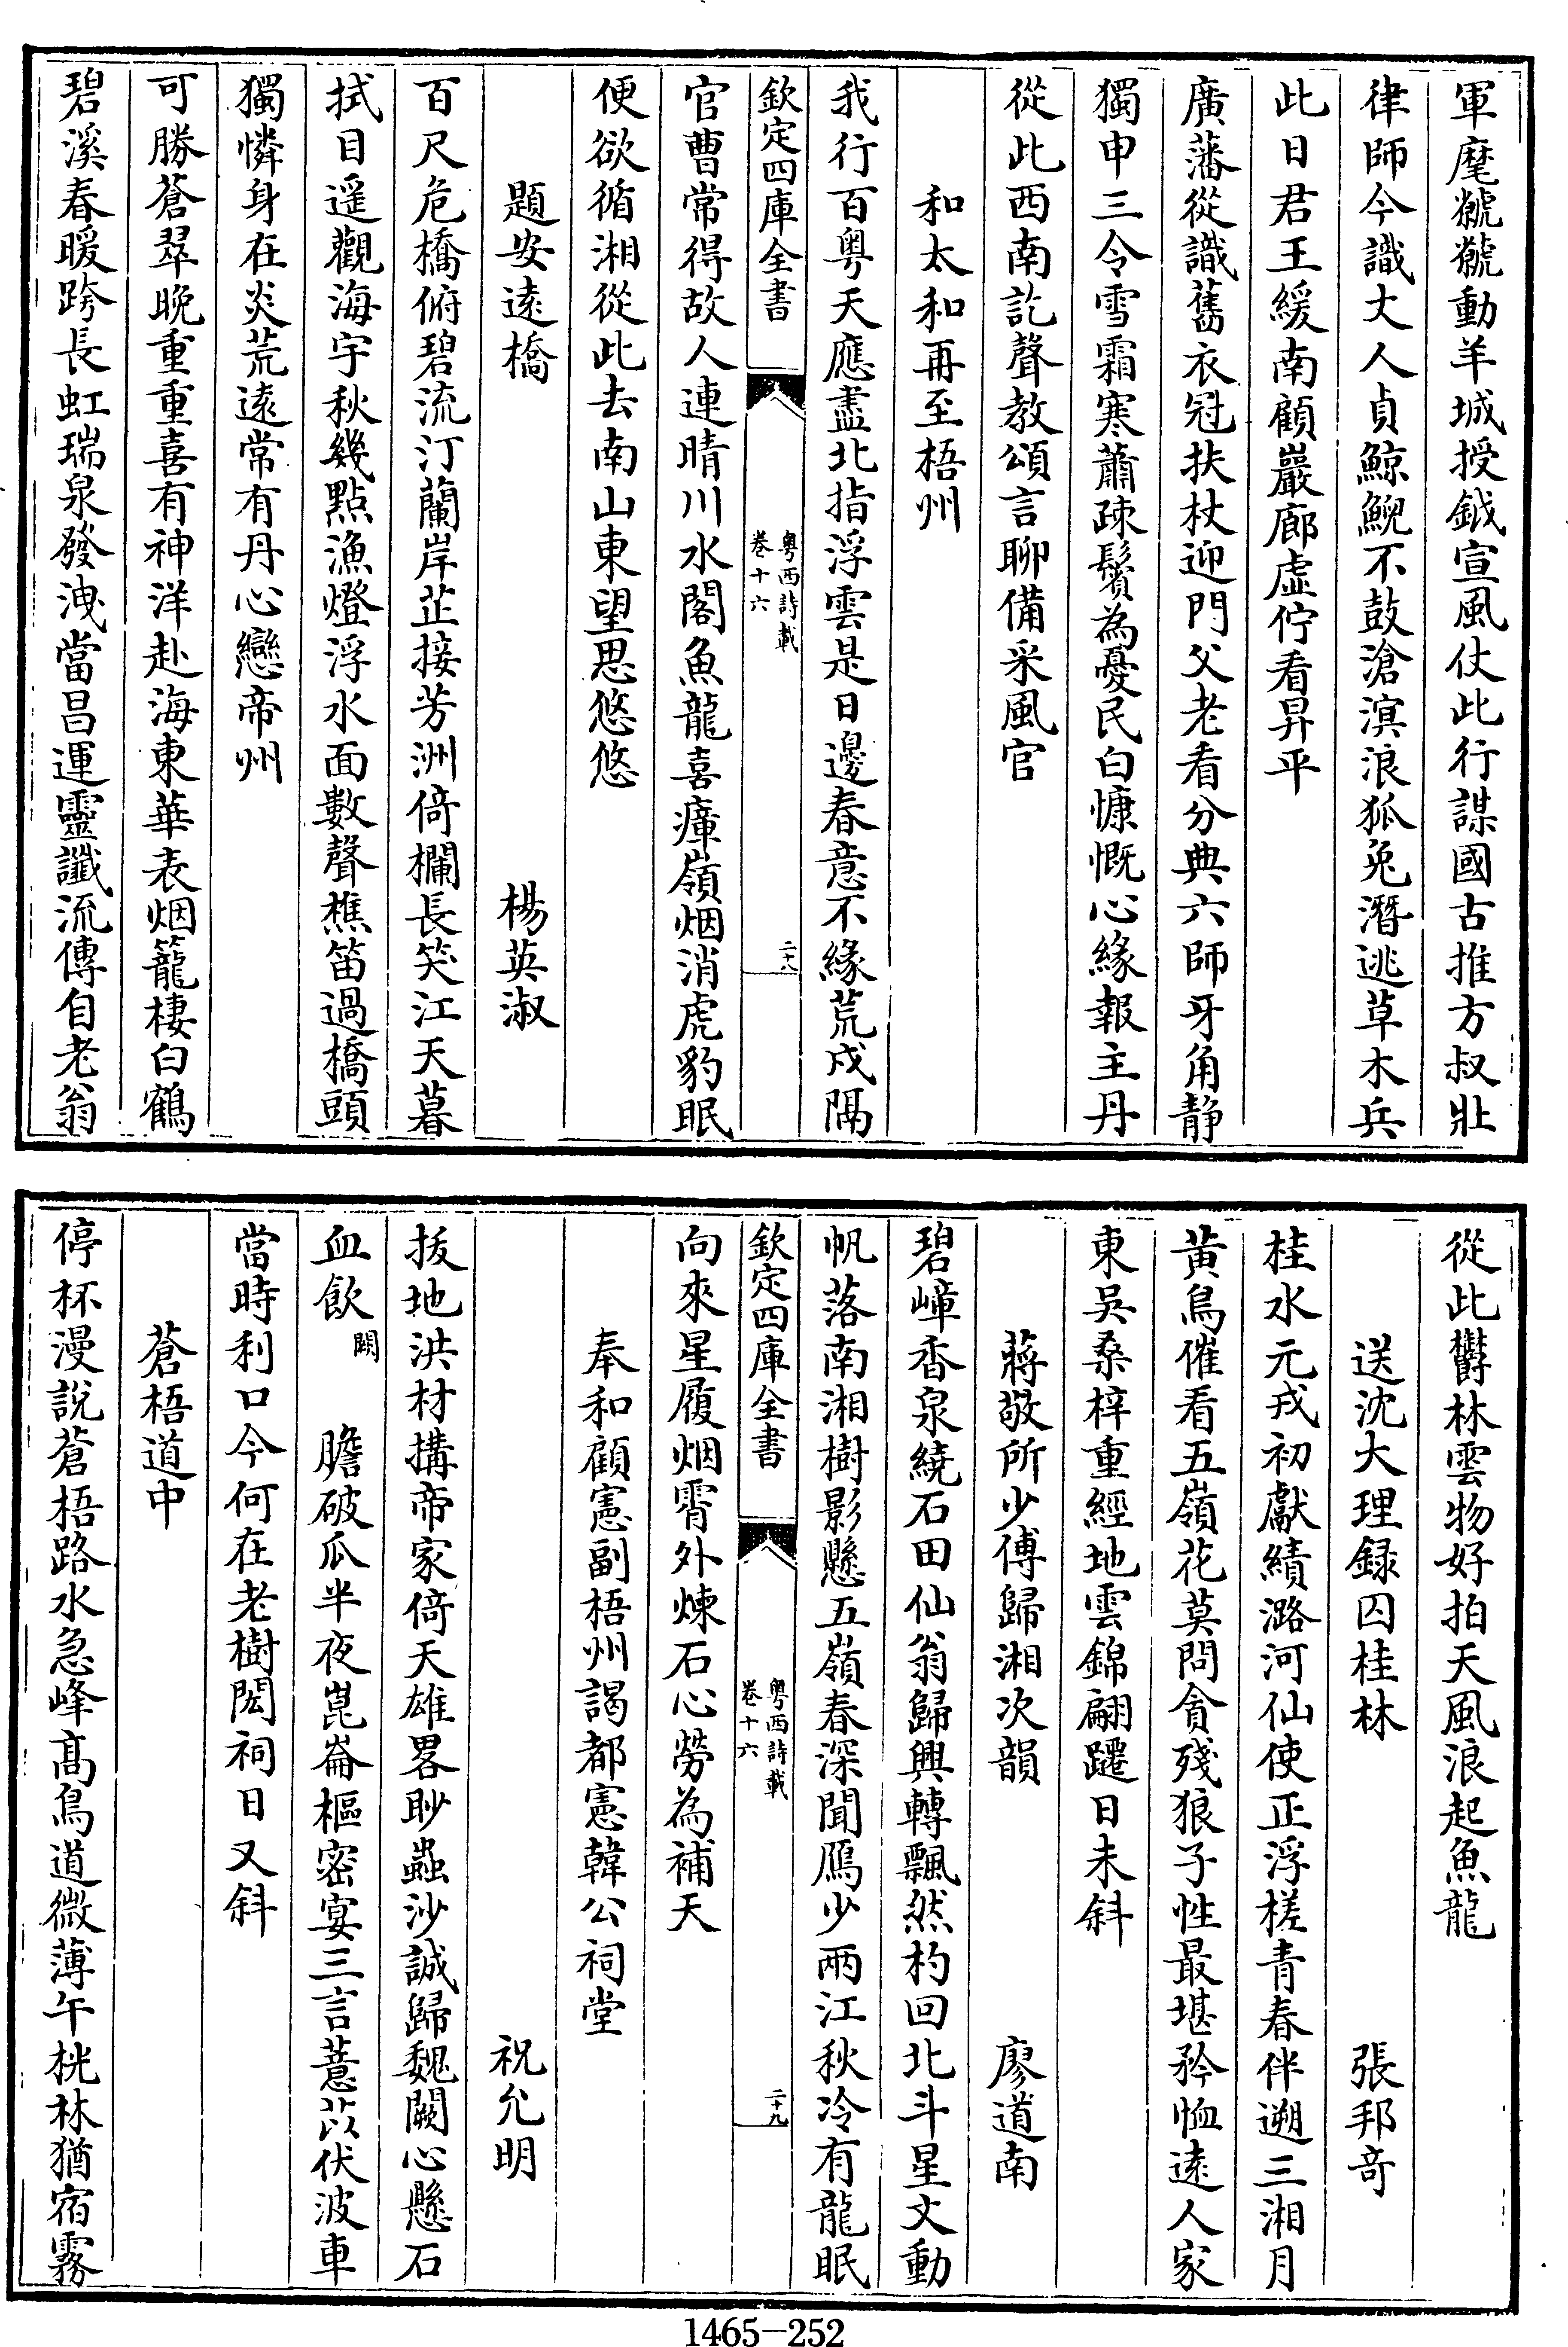 軍麾虩虩動羊城授鉞宣風仗此行謀國古推方叔壯
律師今識丈人貞鯨鯢不鼓滄溟浪狐兎潛逃草木兵
此日君王緩南顧巖廊虛佇看昇平
廣藩從識舊衣冠扶杖迎門父老看分典六師牙角静
獨申三令雪霜寒蕭疎鬢為憂民白慷慨心緣報主丹
從此西南訖聲教頌言聊備采風官
和太和再至梧州
我行百粤天應盡北指浮雲是日邊春意不緣荒戍隔
欽定四庫全書
粤西詩載
卷十六
二十八
官曹常得故人連晴川水閣魚龍喜瘴嶺烟消虎豹眠
便欲循湘從此去南山東望思悠悠
題安逺橋
楊英淑
百尺危橋俯碧流汀蘭岸芷接芳洲倚欄長笑江天暮
拭目遥觀海宇秋幾點漁燈浮水面數聲樵笛過橋頭
獨憐身在炎荒逺常有丹心戀帝州
可勝蒼翠晩重重喜有神洋赴海東華表烟籠棲白鶴
碧溪春暖跨長虹瑞泉發洩當昌運靈讖流傳自老翁
從此欝林雲物好拍天風浪起魚龍
送沈大理録囚桂林
張邦竒
桂水元戎初獻績潞河仙使正浮槎青春伴遡三湘月
黄鳥催看五嶺花莫問貪殘狼子性最堪矜恤逺人家
東吳桑梓重經地雲錦翩躚日未斜
蔣敬所少傅歸湘次韻
廖道南
碧嶂香泉繞石田仙翁歸興轉飄然杓回北斗星文動
帆落南湘樹影懸五嶺春深聞鴈少兩江秋冷有龍眠
欽定四庫全書
粤西詩載
卷十六
二十九
向來星履烟霄外煉石心勞為補天
奉和顧憲副梧州謁都憲韓公祠堂
祝允明
拔地洪材搆帝家倚天雄畧眇蟲沙誠歸魏闕心懸石
血飲闕 膽破瓜半夜崑崙樞密宴三言薏苡伏波車
當時利口今何在老樹閎祠日又斜
蒼梧道中
停杯漫說蒼梧路水急峰髙鳥道微薄午桄林猶宿霧
1465-252